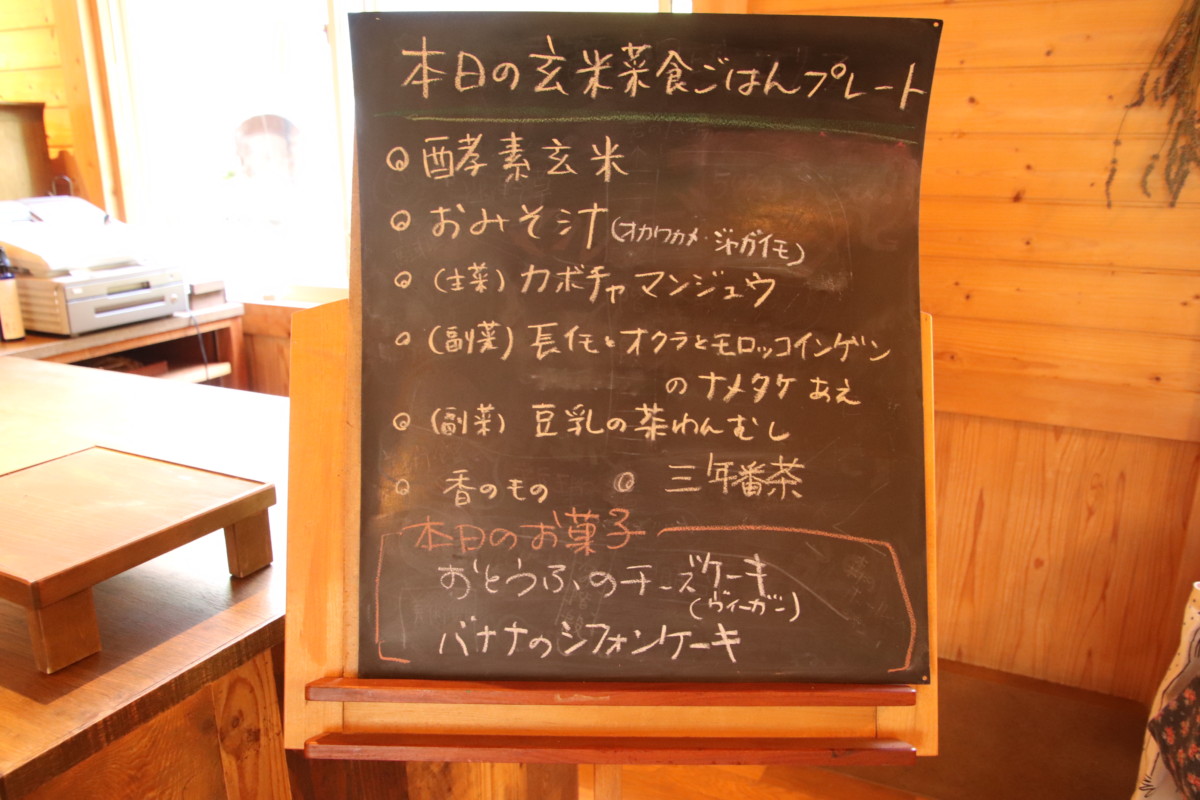 本日の玄米菜食ごはんプレート
◎ 酵素玄米
◎ おみそ汁(オカワカメ・ジャガイモ)
◎ (主菜) カボチャマンジュウ
◎ (副菜) 長イモとオクラとモロッコインゲン
のナメタケあえ
◎ (副菜) 豆乳の茶わんむし
◎ 香のもの ◎ 三年番茶
本日のお菓子
おとうふのチーズケーキ
(ヴィーガン)
バナナのシフォンケーキ